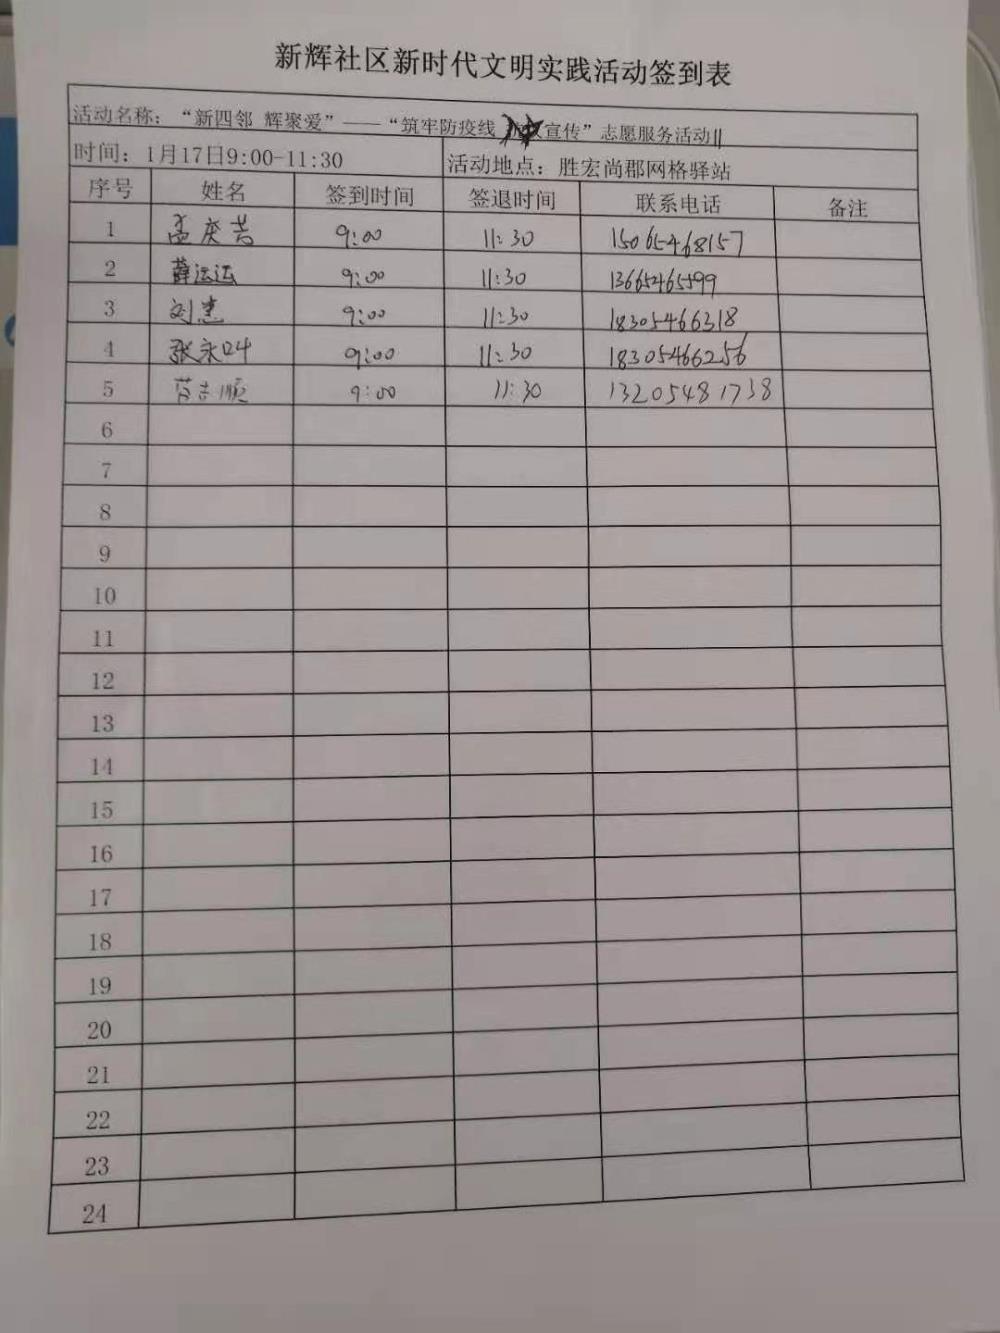 新辉社区新时代文明实践活动签到表
活动名称：“新四邻 辉聚爱”——“筑牢防疫线 宣传”志愿服务活动
时间：1月17日9:00-11:30 活动地点：胜宏尚郡网格驿站
序号 姓名 签到时间 签退时间 联系电话 备注
1 孟庆芸 9:00 11:30 15065468157
2 薛运运 9:00 11:30 13665465599
3 刘惠 9:00 11:30 18305466318
4 张永叶 9:00 11:30 18305466256
5 9:00 11:30 13205481738
6
7
8
9
10
11
12
13
14
15
16
17
18
19
20
21
22
23
24